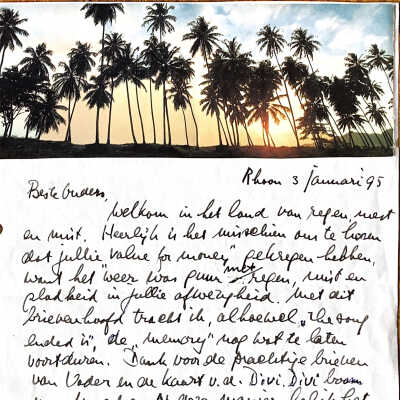 Rhoon 3 januari 95
Beste Ouders,
Welkom in het land van regen, mest
en mist. Heerlijk is het misschien om te horen
dat jullie "value for money" gekregen hebben,
want het weer was guur met regen, mist en
gladheid in jullie afwezigheid. Met dit
briefhoofd tracht ik, alhoewel "the song
ended is", de "memory" nog wat te laten
voortduren. Dank voor de prachtige brieven
van Vader en de kaart v.d. Divi, Divi boom